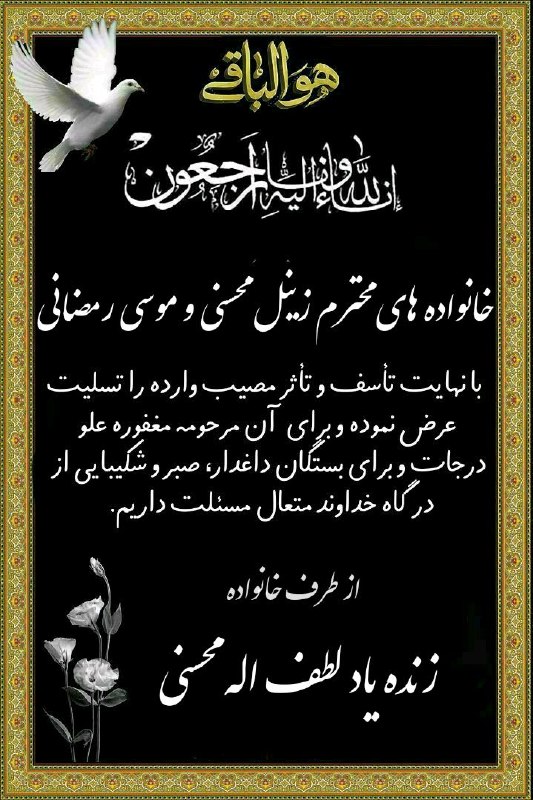 هوالباقی
إنا لله وإنا إلیه راجعون
خانواده های محترم زینل محسنی و موسی رمضانی
با نهایت تأسف و تأثر مصیب وارده را تسلیت
عرض نموده و برای آن مرحومه مغفوره علو
درجات و برای بستگان داغدار، صبر و شکیبایی از
درگاه خداوند متعال مسئلت داریم.
از طرف خانواده
زنده یاد لطف اله محسنی